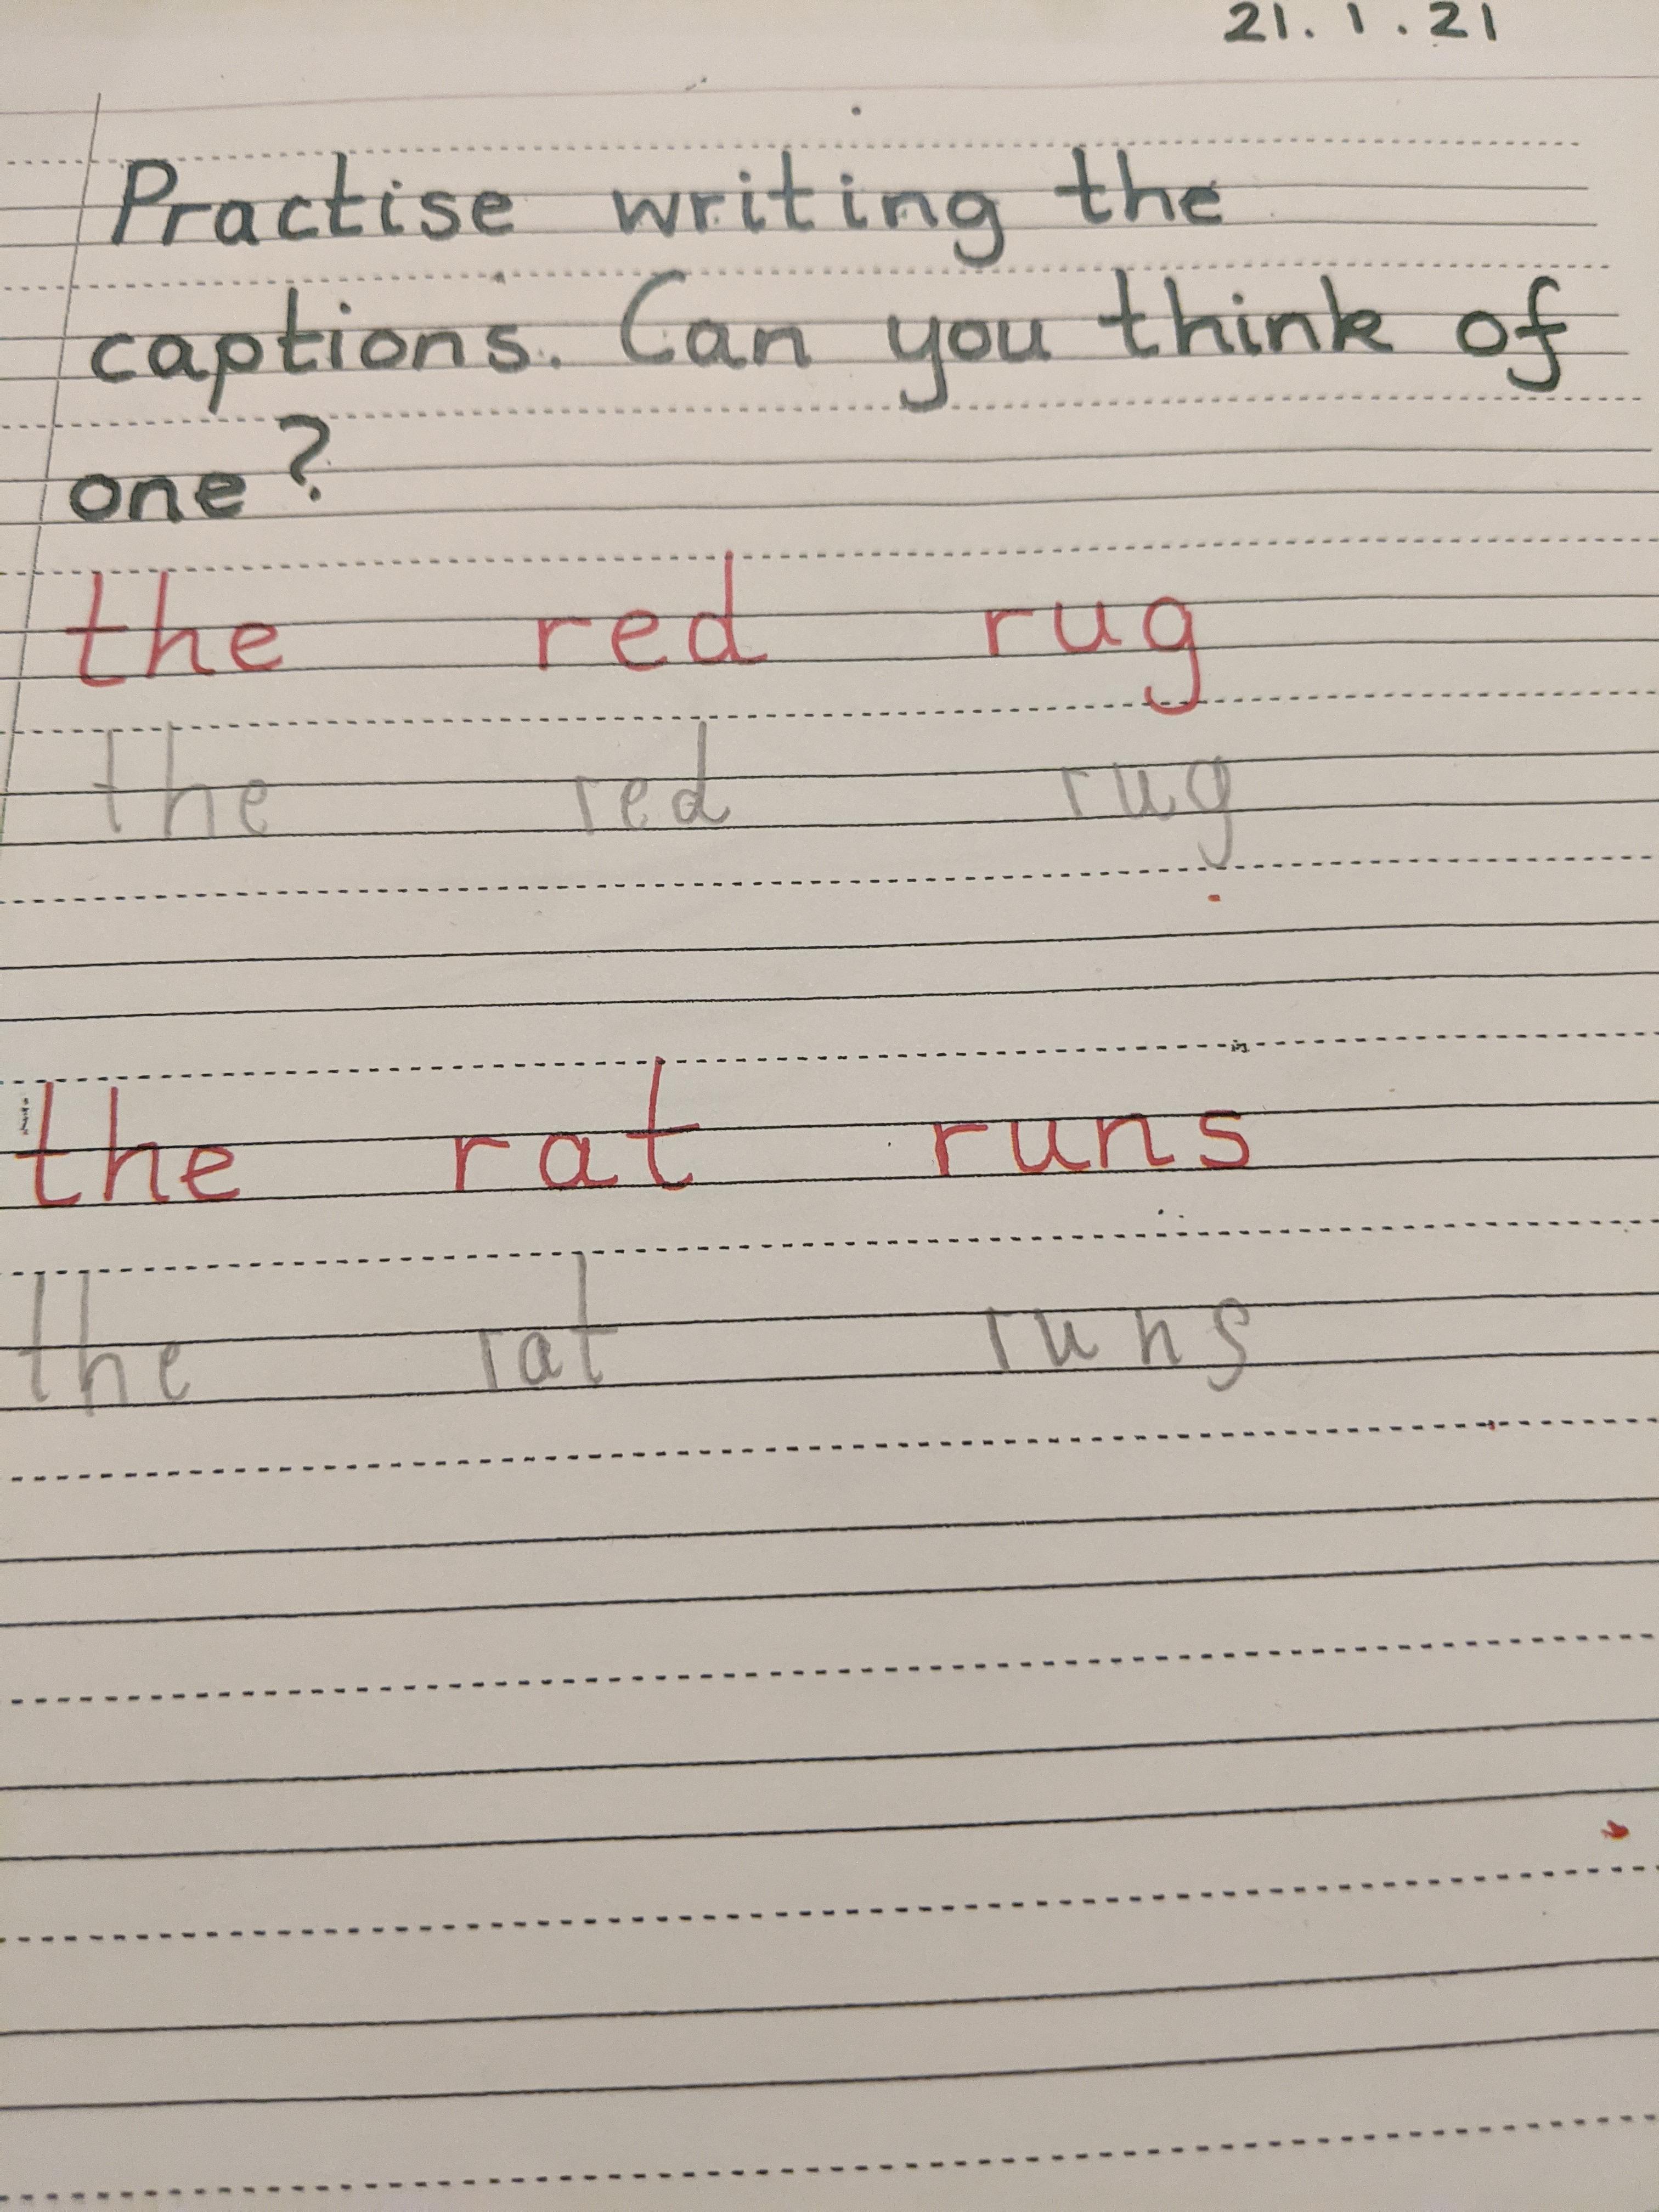 21.1.21
Practise writing the
captions. Can you think of
one?
the red rug
the red rug
the rat runs
the rat runs